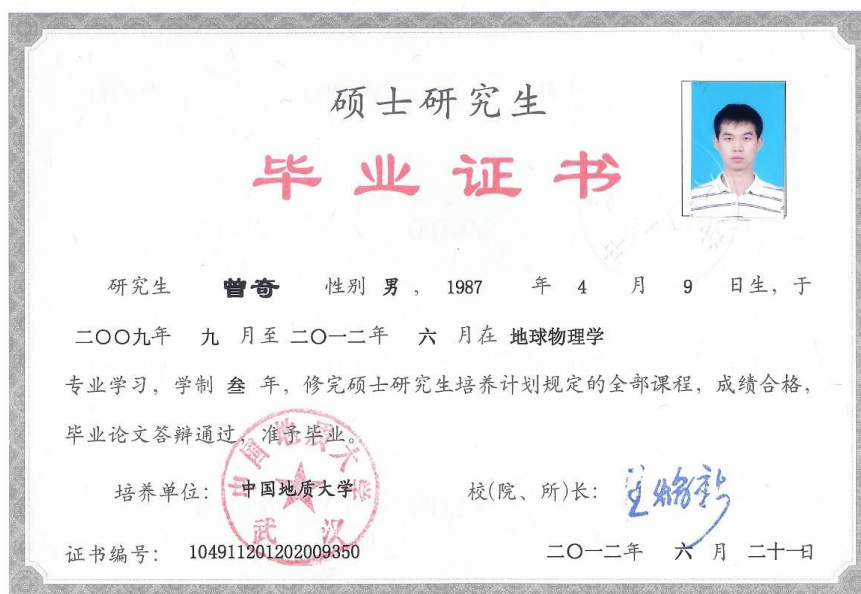 硕士研究生
毕业证书
研究生 曾奇 性别 男 , 1987 年 4 月 9 日生, 于
二〇〇九年 九 月至 二〇一二年 六 月在 地球物理学
专业学习, 学制 叁 年, 修完硕士研究生培养计划规定的全部课程, 成绩合格,
毕业论文答辩通过, 准予毕业。
中国地质大学
武汉
培养单位: 中国地质大学 校(院、所)长:
证书编号: 104911201202009350 二〇一二年 六 月 二十一日